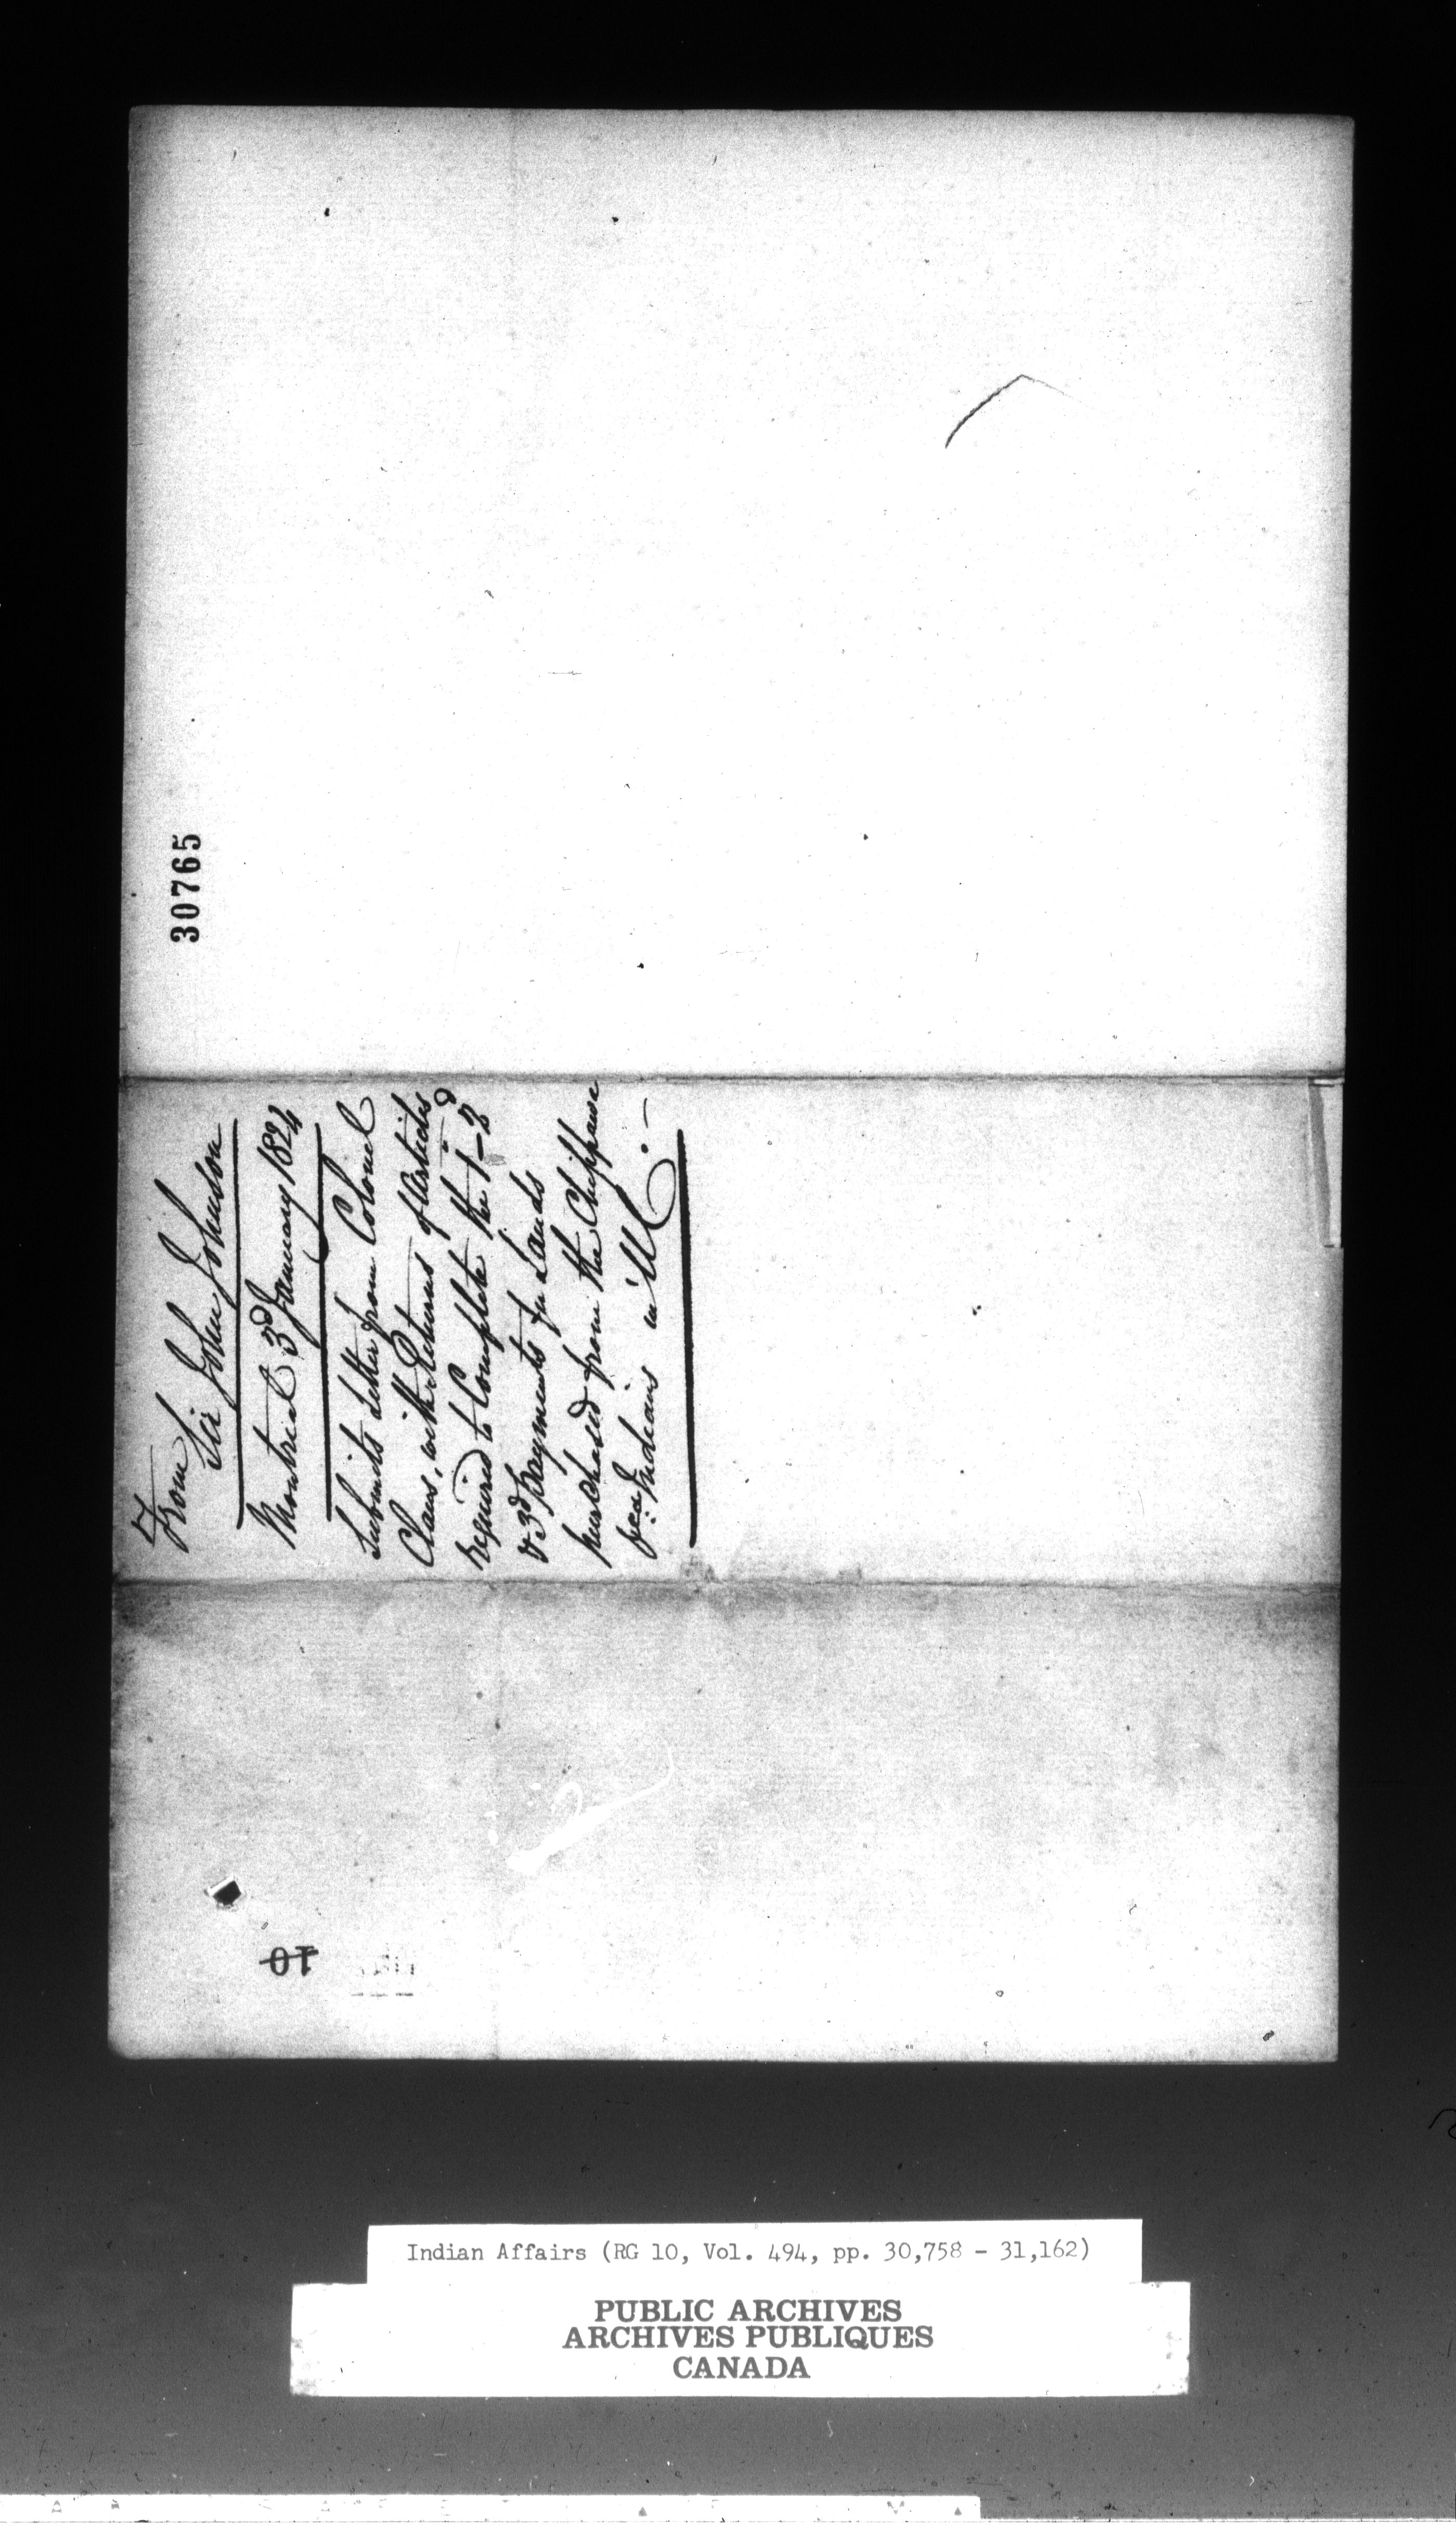 30765
From
Sir John Johnson
Montreal 3d January 1824
Submits Letter from Colonel
Claus, with Returns of Articles
required to Complete the 1 - 2d
& 3d Payments for Lands
purchased from the Chippawa
Indians in
10
Indian Affairs (RG 10, Vol. 494, pp. 30,758 - 31,162)
PUBLIC ARCHIVES
ARCHIVES PUBLIQUES
CANADA